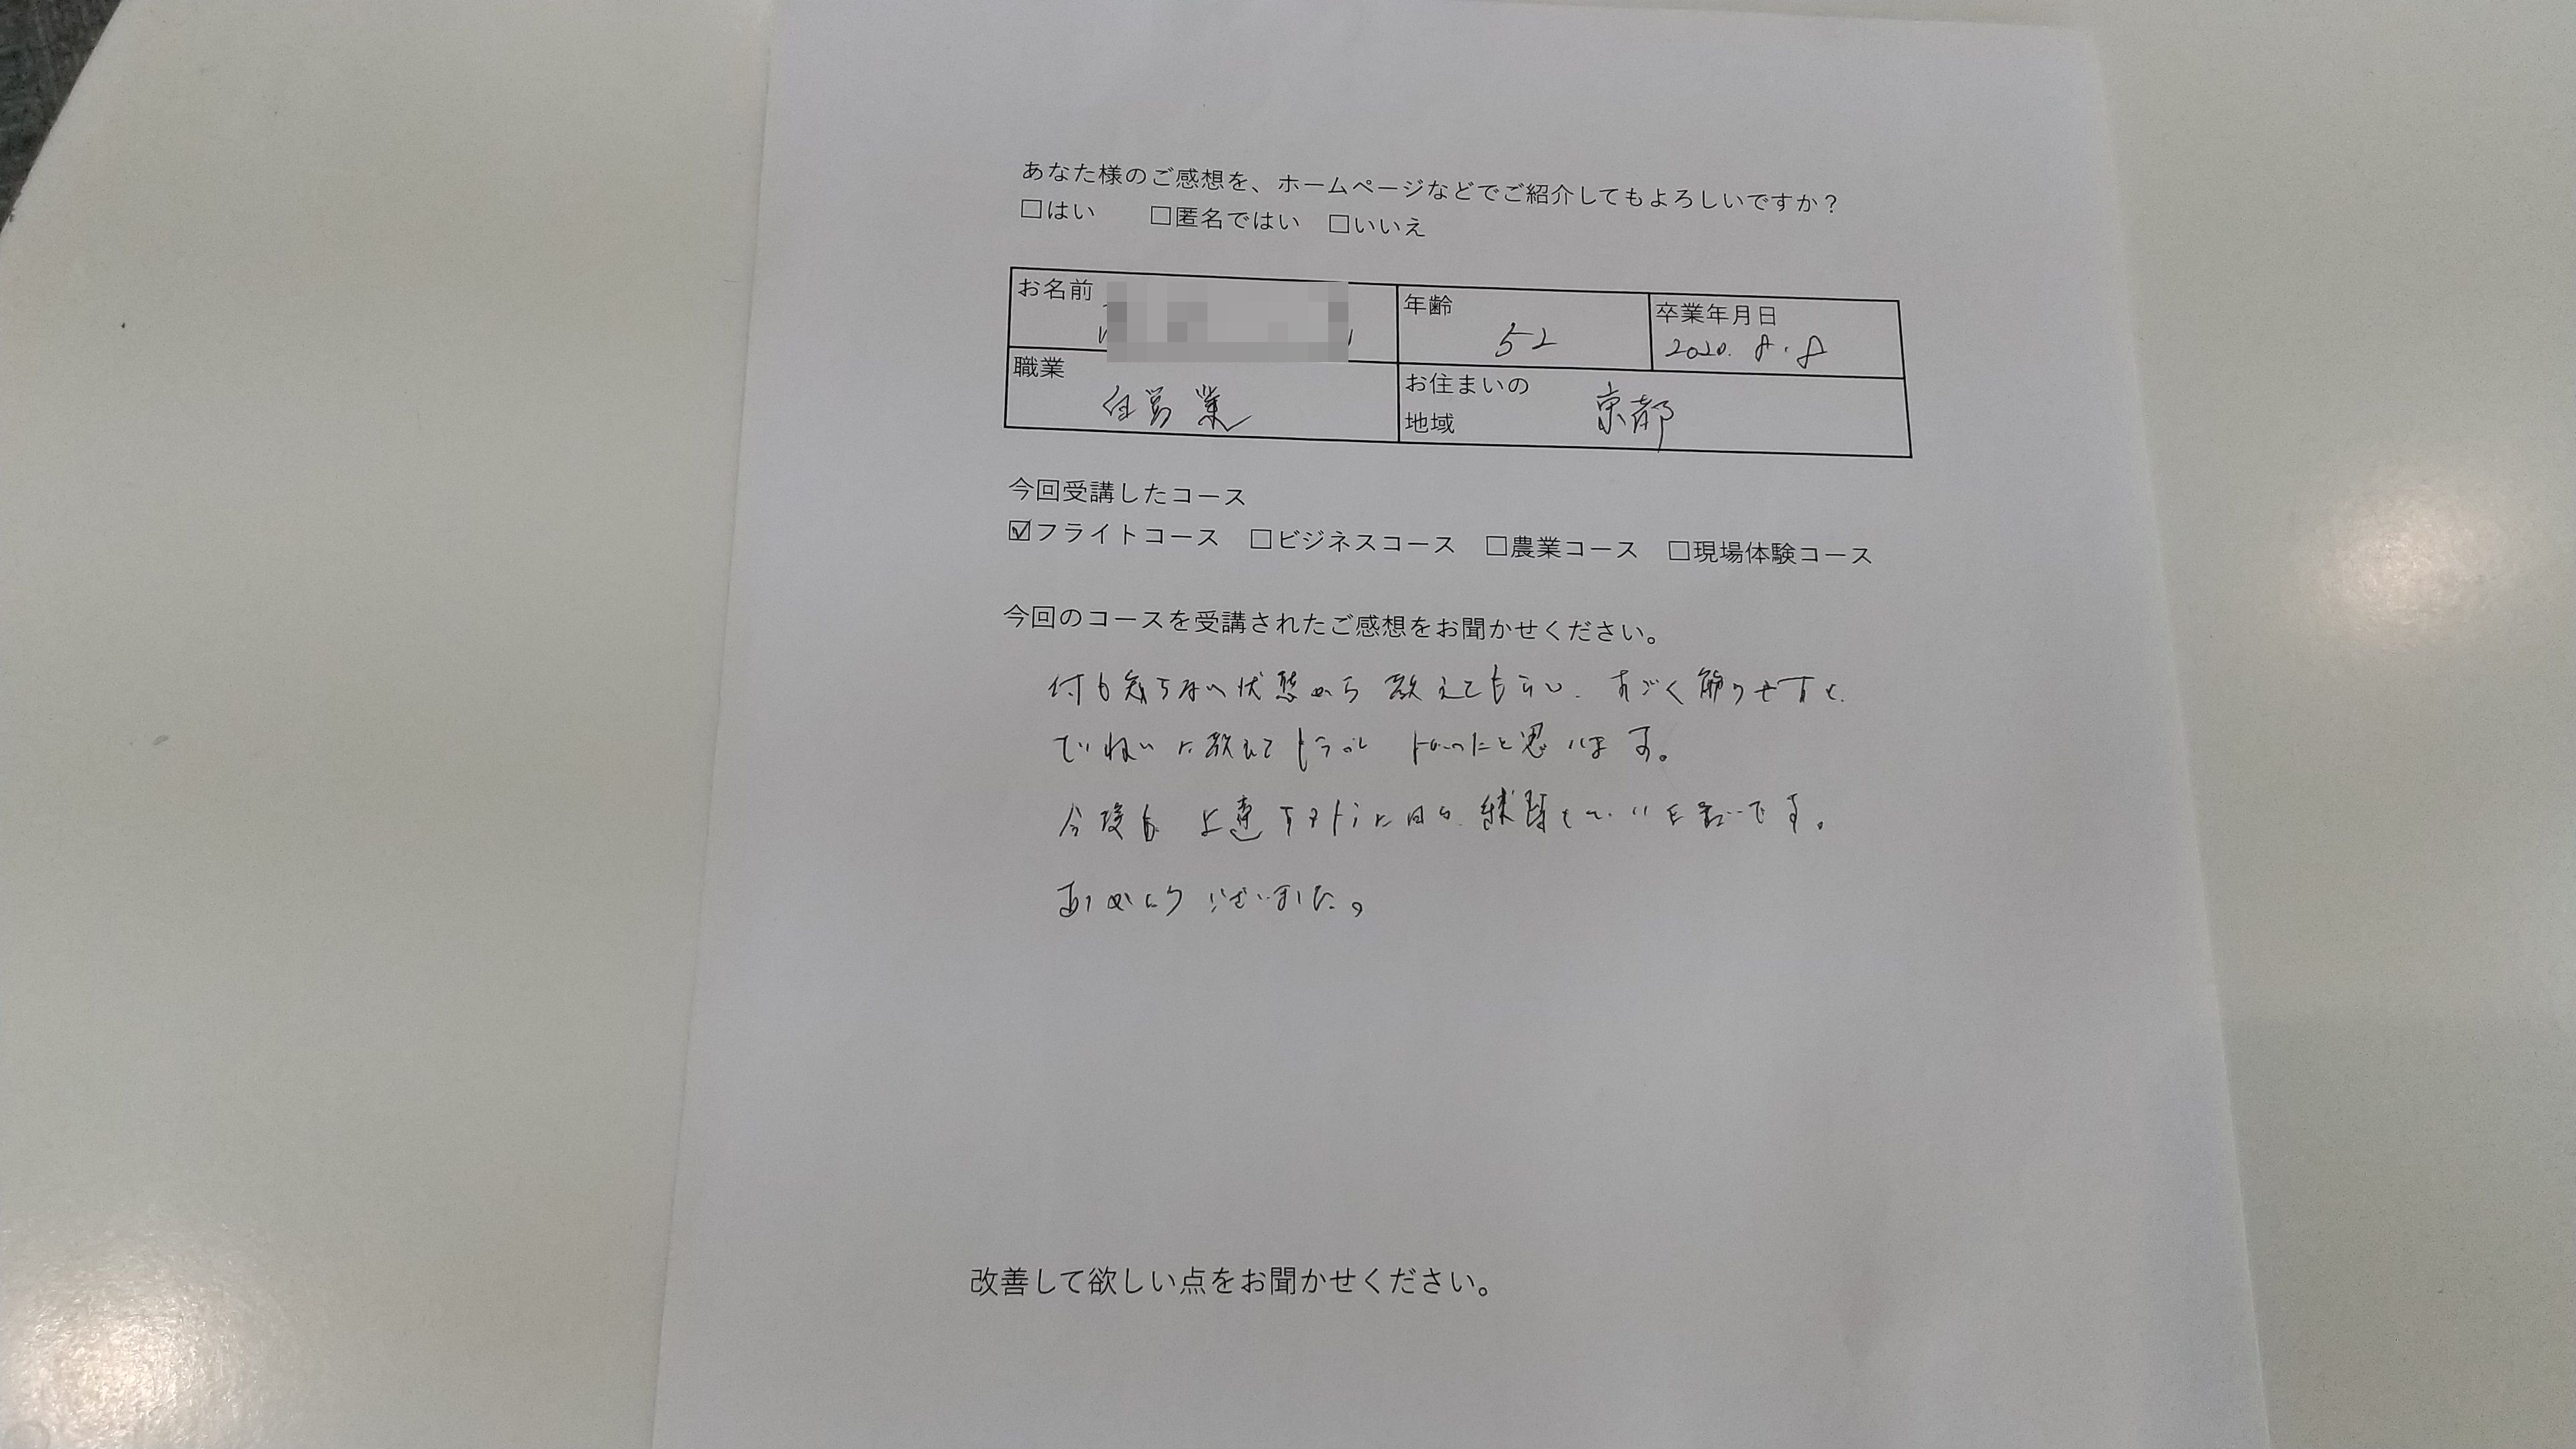 あなた様のご感想を、ホームページなどでご紹介してもよろしいですか？
□はい □匿名ではい □いいえ
お名前
年齢 52
卒業年月日 2020. 8. 8
職業 自営業
お住まいの地域 京都
今回受講したコース
☑フライトコース □ビジネスコース □農業コース □現場体験コース
今回のコースを受講されたご感想をお聞かせください。
何も知らない状態から教えてもらい、すごく解りやすく、
ていねいに教えてもらい よかったと思います。
今後も上達するように日々練習をしていきたいです。
ありがとうございました。
改善して欲しい点をお聞かせください。